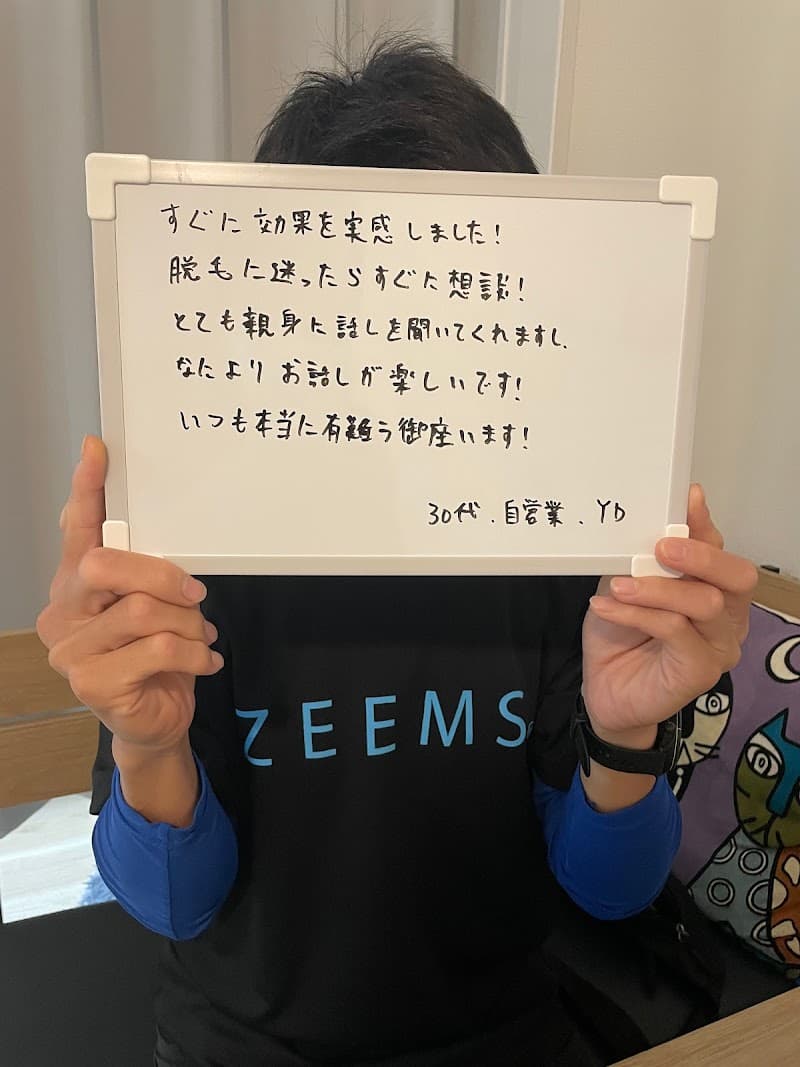 すぐに効果を実感しました!
脱毛に迷ったらすぐに想談!
とても親身に話しを聞いてくれますし、
なにより お話しが楽しいです!
いつも本当に有難う御座います!
30代、自営業、YD
ZEEMS